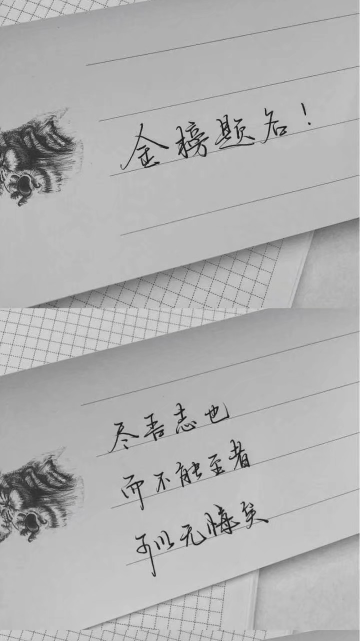 金榜题名!
尽吾志也
而不能至者
可以无悔矣